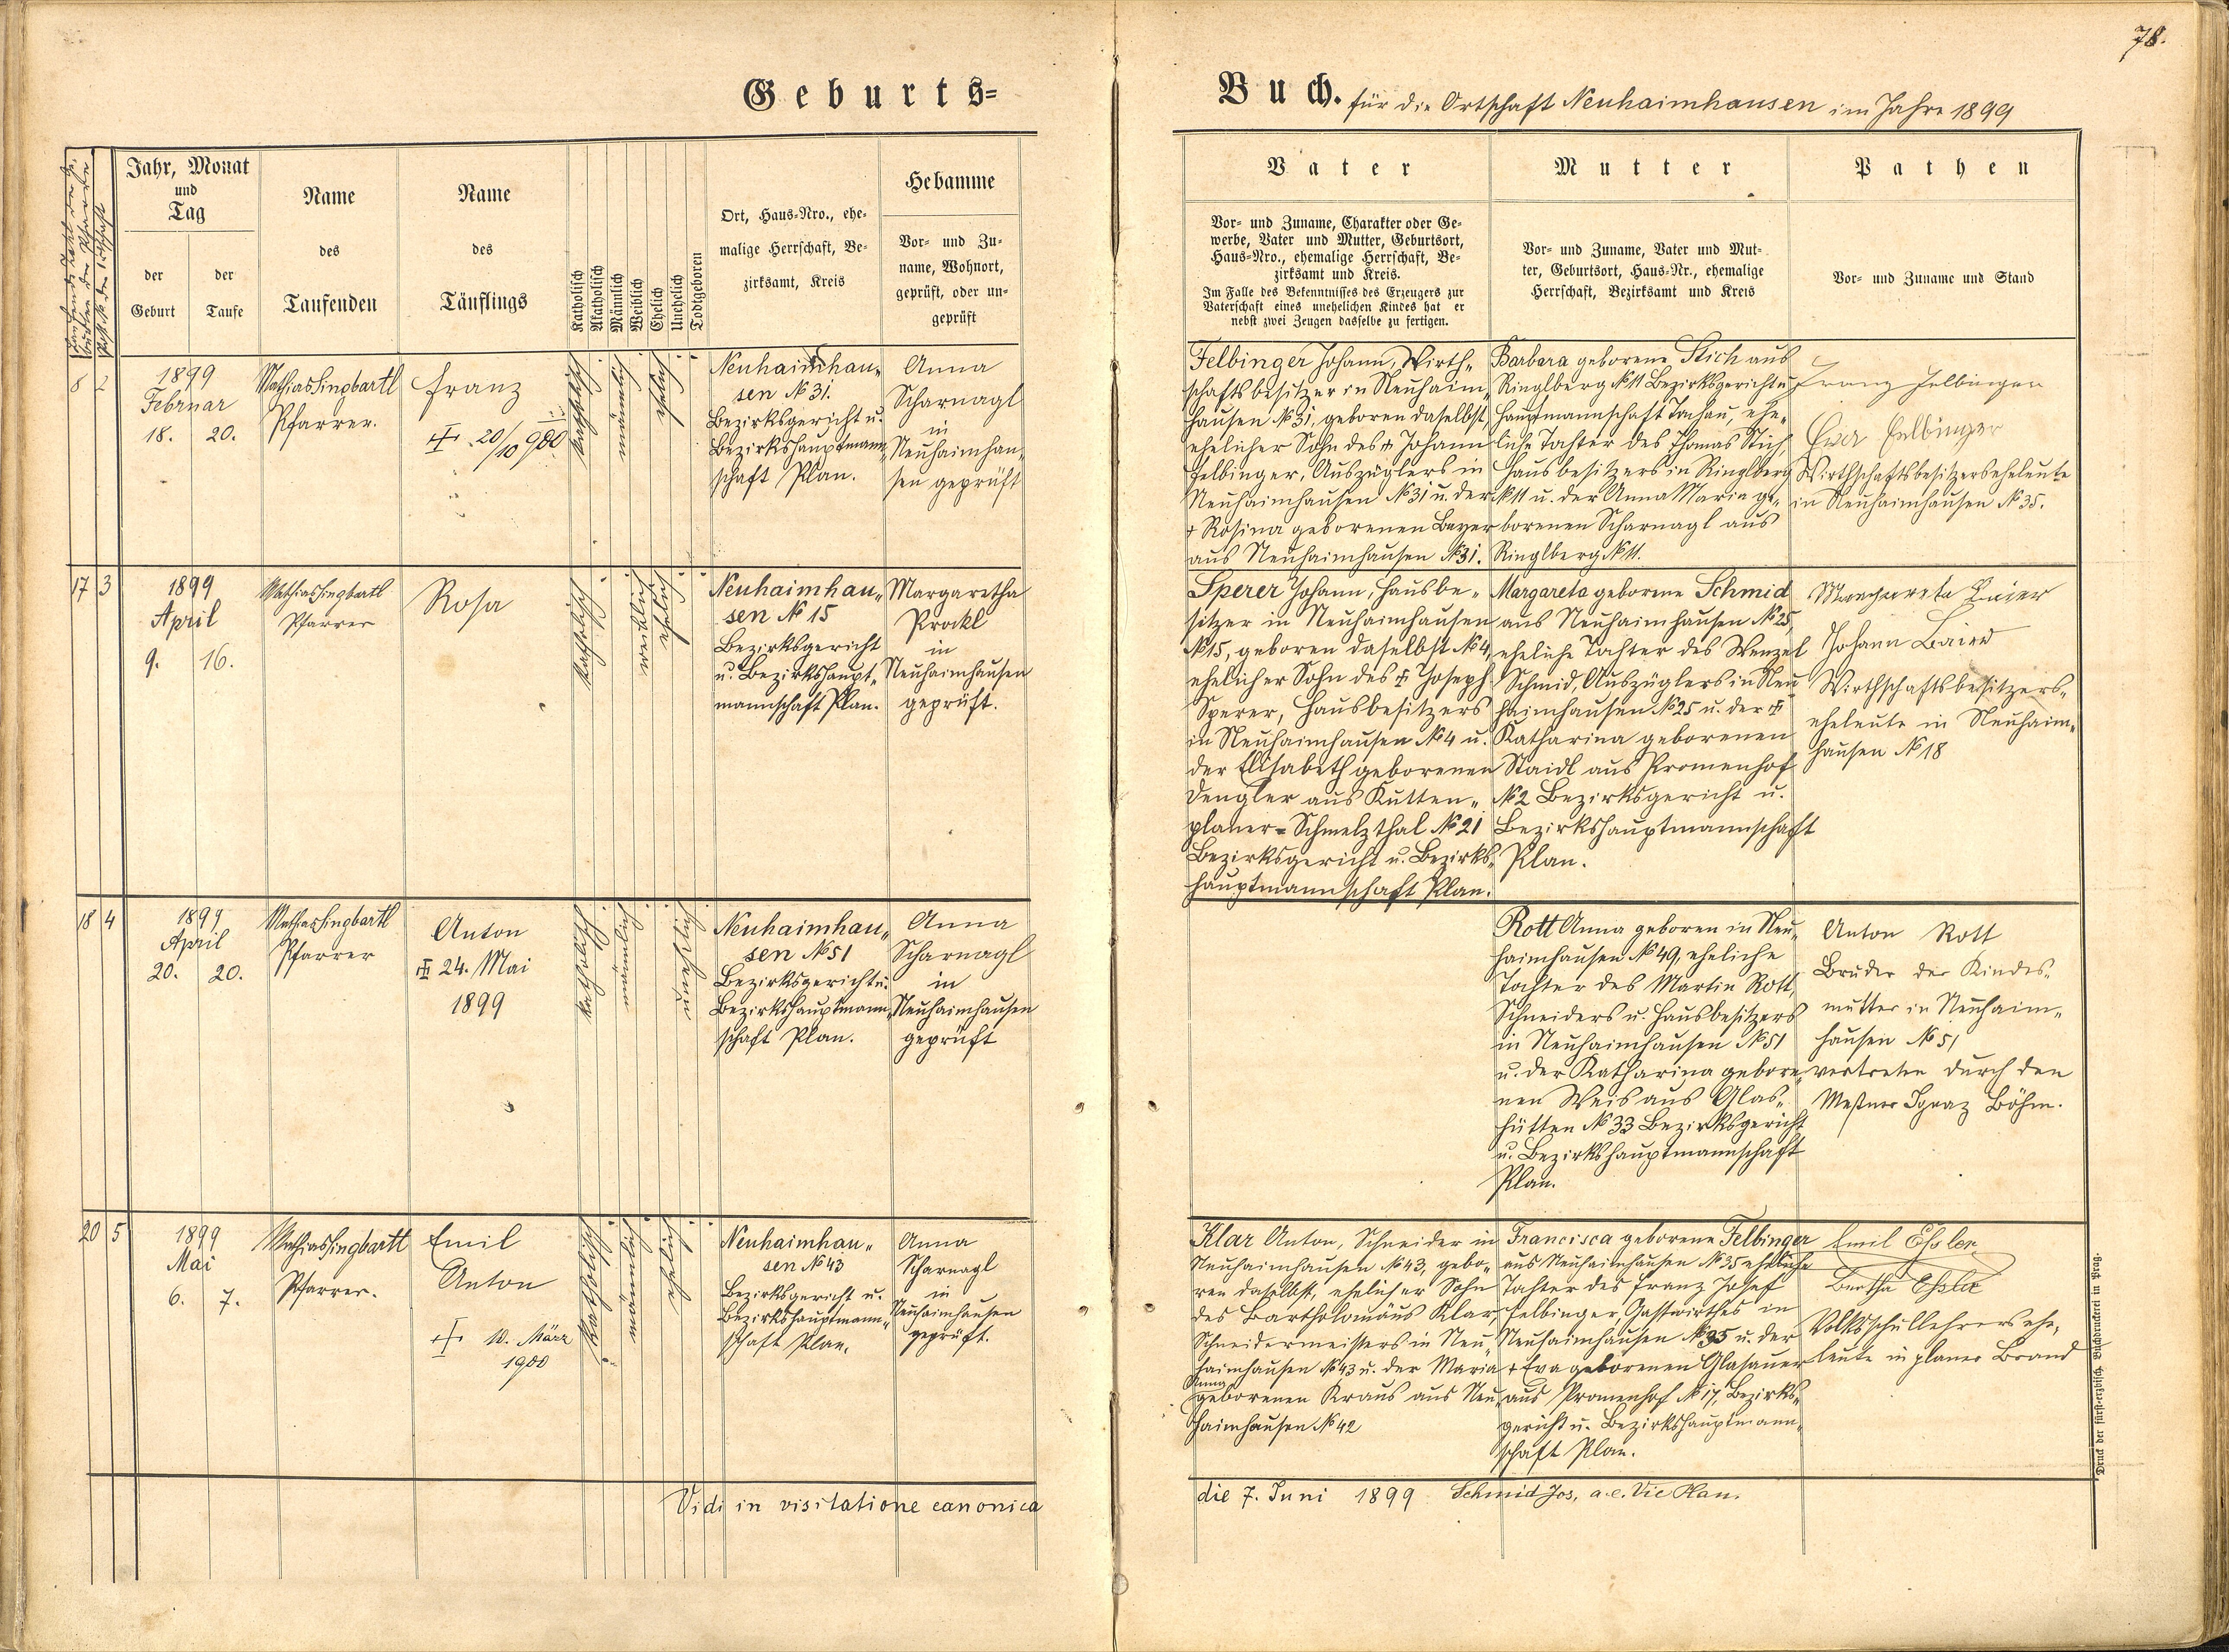 78.
Geburts=
Buch. für die Ortschaft Neuhaimhausen im Jahre 1899
Jahr, Monat
und
Tag
der
Geburt
der
Taufe
Name
des
Taufenden
Name
des
Täuflings
Katholisch
Akatholisch
Männlich
Weiblich
Ehelich
Unehelich
Todtgeboren
Ort, Haus-Nro., ehe-
malige Herrschaft, Be-
zirksamt, Kreis
Hebamme
Vor- und Zu-
name, Wohnort,
geprüft, oder un-
geprüft
Vater
Vor- und Zuname, Charakter oder Ge-
werbe, Vater und Mutter, Geburtsort,
Haus-Nro., ehemalige Herrschaft, Be-
zirksamt und Kreis.
Im Falle des Bekenntnisses des Erzeugers zur
Vaterschaft eines unehelichen Kindes hat er
nebst zwei Zeugen dasselbe zu fertigen.
Mutter
Vor- und Zuname, Vater und Mut-
ter, Geburtsort, Haus-Nr., ehemalige
Herrschaft, Bezirksamt und Kreis
Pathen
Vor- und Zuname und Stand
8 2
1899
Februar
18. 20.
Mathias Singbartl
Pfarrer.
Franz
20/10 900
katholisch
männlich
ehelich
Neuhaimhau„
sen № 31.
Bezirksgericht u.
Bezirkshauptmann„
schaft Plan.
Anna
Scharnagl
in
Neuhaimhau„
sen geprüft
Felbinger Johann, Wirth„
schaftsbesitzer in Neuhaim„
hausen № 31, geboren daselbst
ehelicher Sohn des Johann
Felbinger, Auszüglers in
Neuhaimhausen № 31 u. der
+ Rosina geborenen Bayer
aus Neuhaimhausen № 31.
Barbara geborene Stich aus
Ringlberg № 11 Bezirksgericht u.
Hauptmannschaft Tachau, ehe„
liche Tochter des Thomas Stich,
Hausbesitzers in Ringlberg
№ 11 u. der Anna Maria ge„
borenen Scharnagl aus
Ringlberg № 11.
Franz Felbinger
Eva Felbinger
Wirthschaftsbesitzerseheleute
in Neuhaimhausen № 35.
17 3
1899
April
9. 16.
Mathias Singbartl
Pfarrer
Rosa
katholisch
weiblich
ehelich
Neuhaimhau„
sen № 15
Bezirksgericht
u. Bezirkshaupt„
mannschaft Plan.
Margaretha
Prockl
in
Neuhaimhausen
geprüft.
Sperer Johann, Hausbe„
sitzer in Neuhaimhausen
№ 15, geboren daselbst № 4,
ehelicher Sohn des Joseph
Sperer, Hausbesitzers
in Neuhaimhausen № 4 u.
der Elisabeth geborenen
Dengler aus Kutten„
planer=Schmelzthal № 21
Bezirksgericht u. Bezirks„
hauptmannschaft Plan.
Margareta geborene Schmid
aus Neuhaimhausen № 25,
eheliche Tochter des Wenzel
Schmid, Auszüglers in Neu
haimhausen № 25 u. der
Katharina geborenen
Staidl aus Promenhof
№ 2 Bezirksgericht u.
Bezirkshauptmannschaft
Plan.
Margareta Baier
Johann Baier
Wirthschaftsbesitzers„
eheleute in Neuhaim„
hausen № 18
18 4
1899
April
20. 20.
Mathias Singbartl
Pfarrer
Anton
24. Mai
1899
katholisch
männlich
unehelich
Neuhaimhau„
sen № 51
Bezirksgericht u.
Bezirkshauptmann„
schaft Plan.
Anna
Scharnagl
in
Neuhaimhausen
geprüft
Rott Anna geboren in Neu„
haimhausen № 49, eheliche
Tochter des Martin Rott,
Schneiders u. Hausbesitzers
in Neuhaimhausen № 51
u. der Katharina gebore„
nen Weis aus Glas„
hütten № 33 Bezirksgericht
u. Bezirkshauptmannschaft
Plan.
Anton Rott
Bruder der Kindes„
mutter in Neuhaim„
hausen № 51
vertreten durch den
Meßner Ignaz Böhm.
20 5
1899
Mai
6. 7.
Mathias Singbartl
Pfarrer.
Emil
Anton
10. März
1900
katholisch
männlich
ehelich
Neuhaimhau„
sen № 43
Bezirksgericht u.
Bezirkshauptmann„
schaft Plan.
Anna
Scharnagl
in
Neuhaimhausen
geprüft.
Klar Anton, Schneider in
Neuhaimhausen № 43, gebo„
ren daselbst, ehelicher Sohn
des Bartholomäus Klar,
Schneidermeisters in Neu„
haimhausen № 43 u. der Maria
Anna
geborenen Kraus aus Neu„
haimhausen № 42
Francisca geborene Felbinger
aus Neuhaimhausen № 35 eheliche
Tochter des Franz Josef
Felbinger, Gastwirthes in
Neuhaimhausen № 35 u. der
+ Eva geborenen Glasauer
aus Promenhof № 17, Bezirks„
gericht u. Bezirkshauptmann„
schaft Plan.
Emil Eßler
Bertha Eßler
Volksschullehrersehe„
leute in planer Brand
Vidi in visitatione canonica
die 7. Juni 1899 Schmid Jos, a.e. Vic Plan.
Druck der fürsterzbisch. Buchdruckerei in Prag.